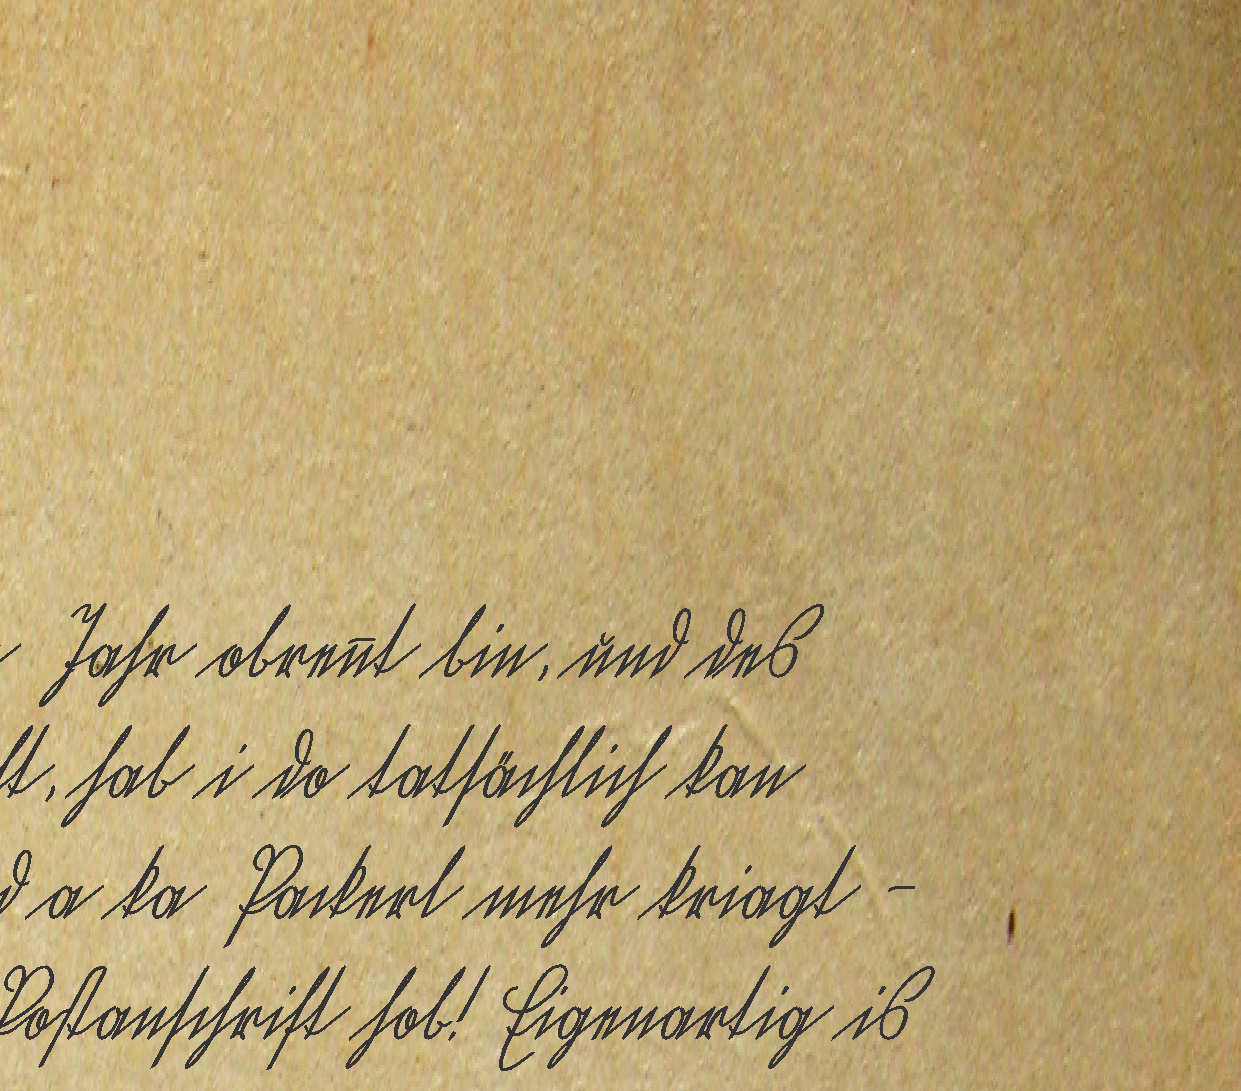 Jahr obreñt bin, und des
hab i do tatsächlich kan
a ka Packerl mehr kriagt -
Postanschrift hob! Eigenartig is